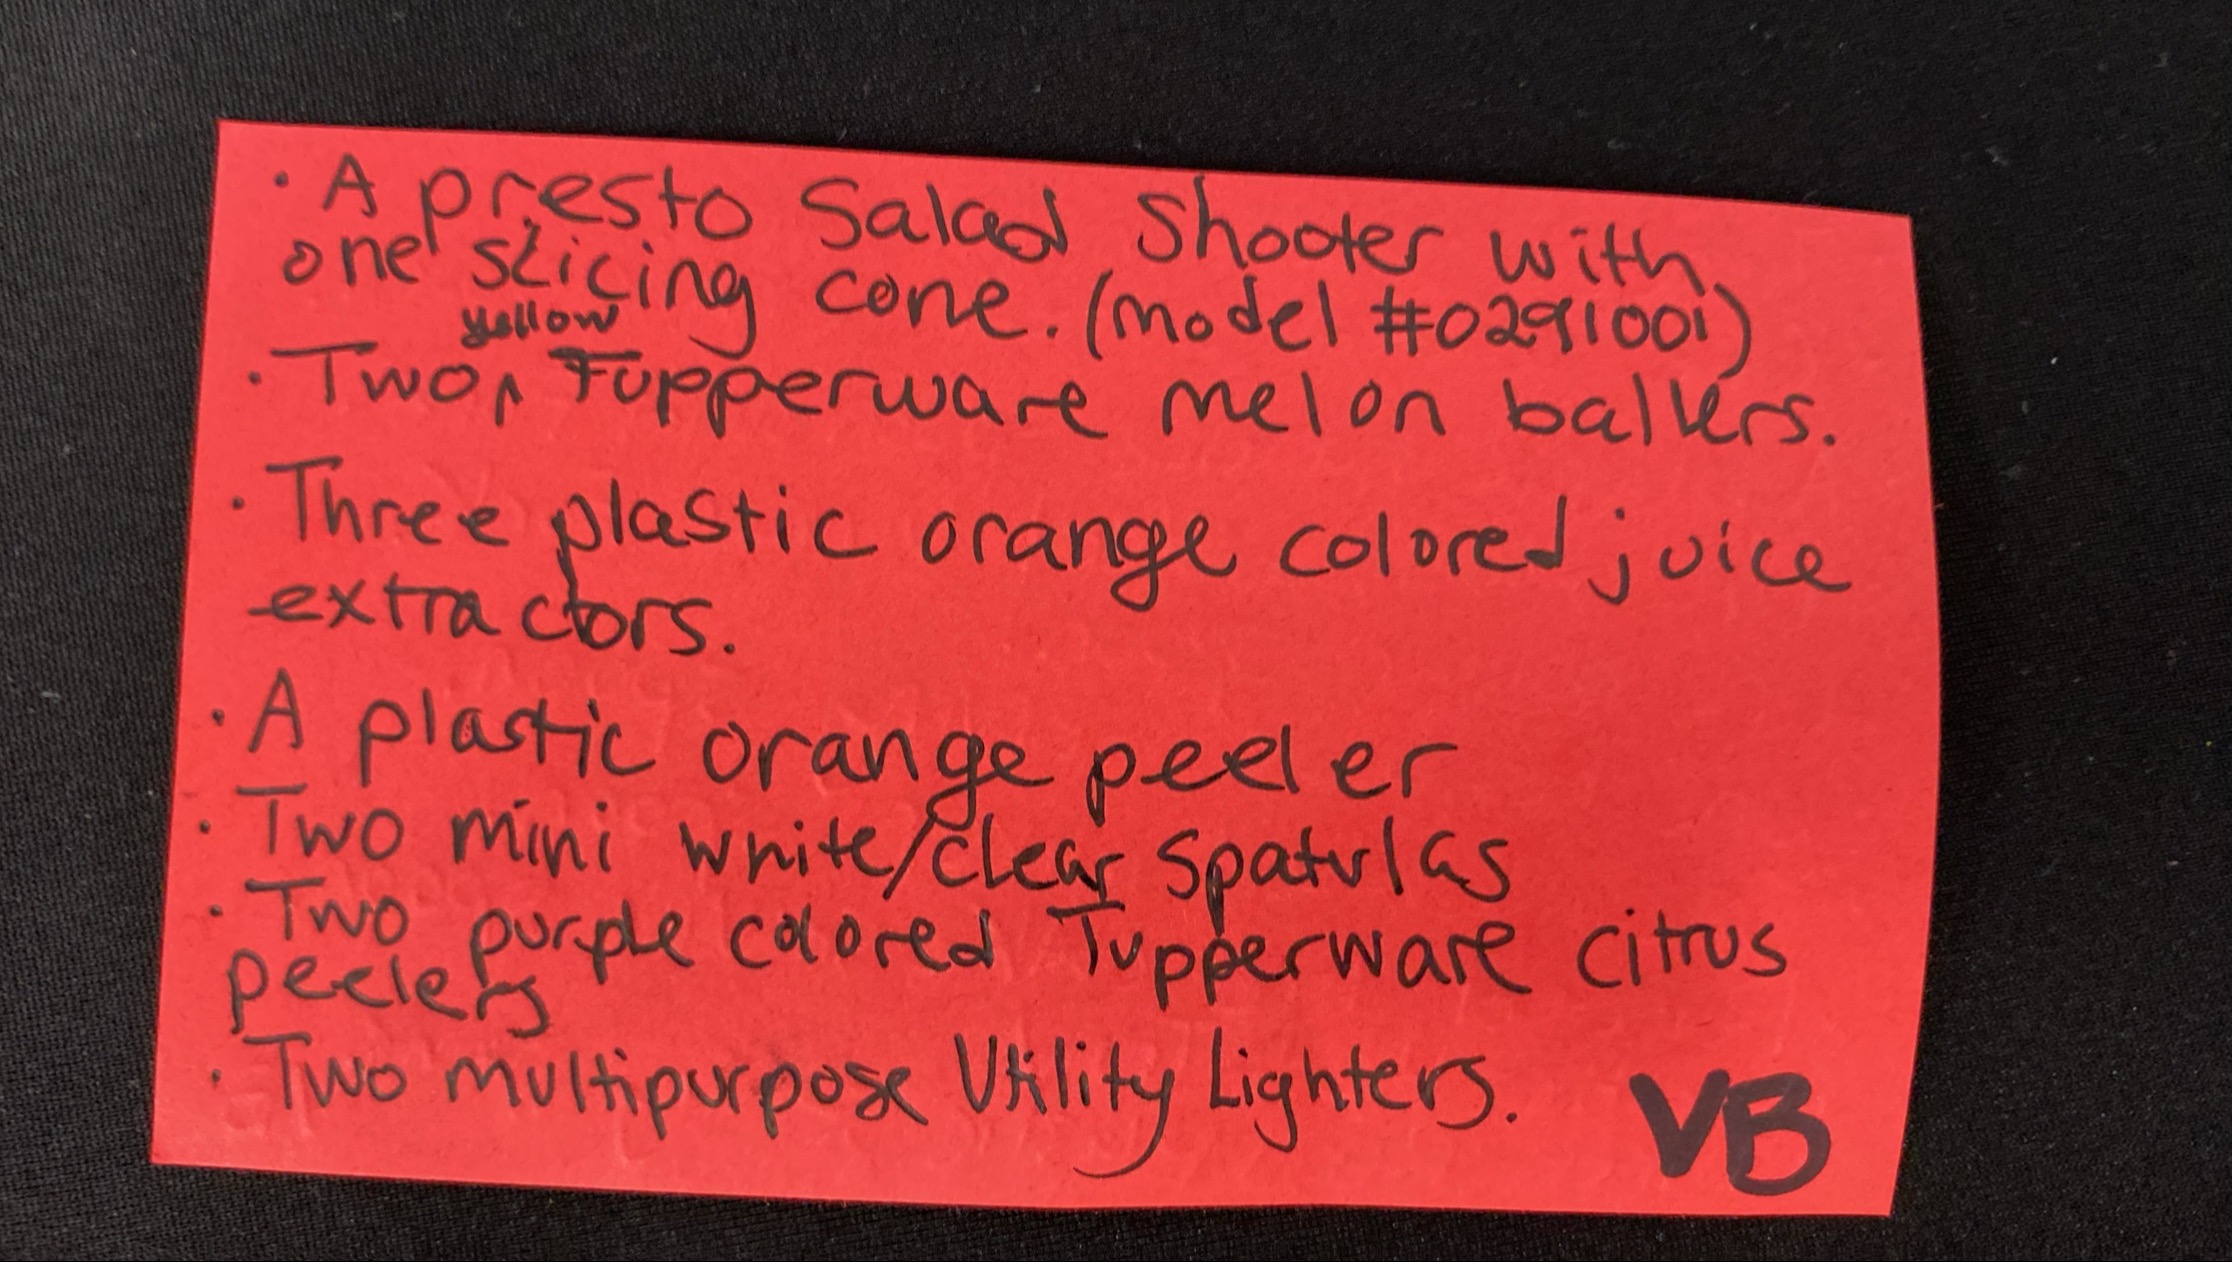 · A presto Salad Shooter with
one slicing cone. (model #0291001)
yellow
· Two^ Tupperware melon ballers.
· Three plastic orange colored juice
extractors.
· A plastic orange peeler
· Two mini white/clear Spatulas
· Two purple colored Tupperware citrus
peelers
· Two multipurpose Utility Lighters.
VB